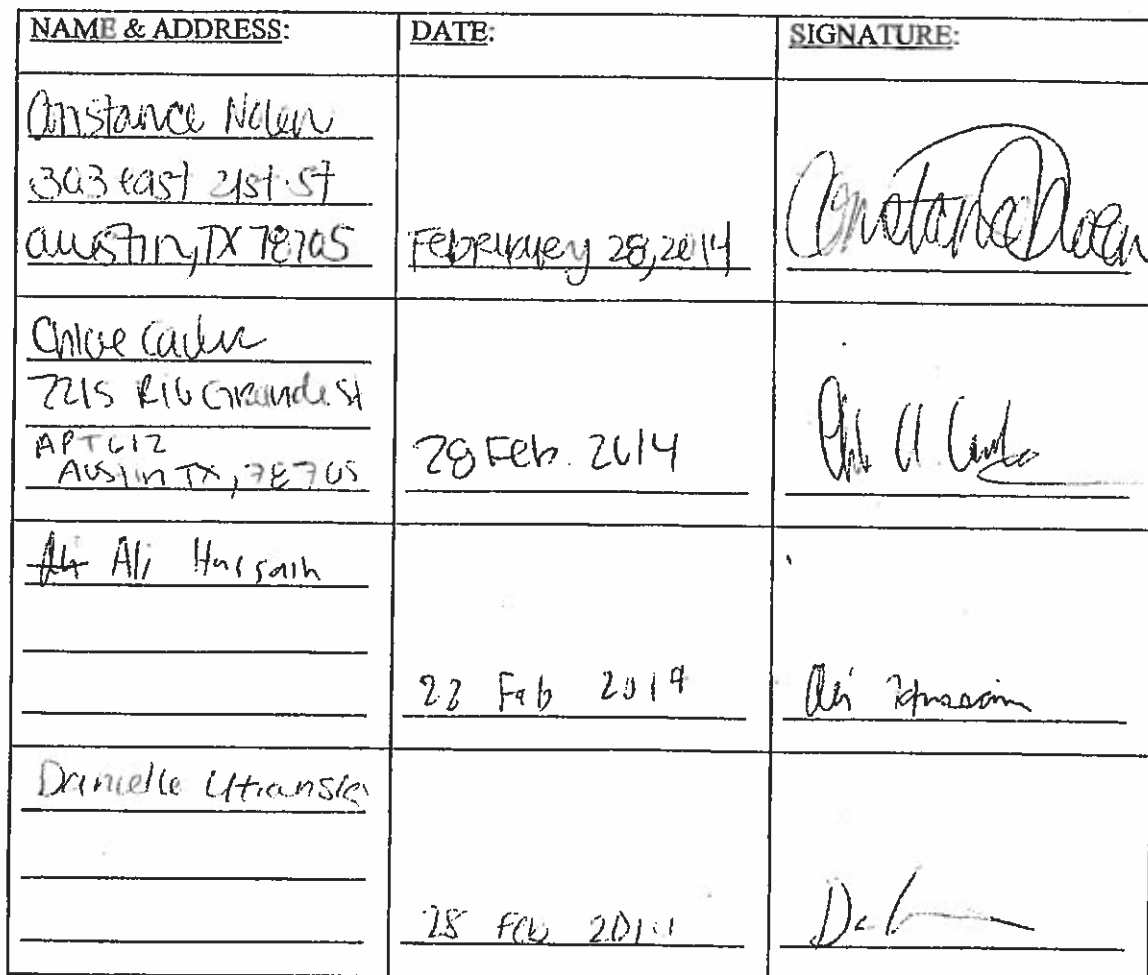 NAME & ADDRESS: DATE: SIGNATURE:
Constance Nolen
303 east 21st St
Austin, TX 78705 February 28, 2014
Chloe
2215 Rio Grande St
APT 612
Austin TX, 78705 28 Feb. 2014
Ali Hussain
Feb 2014 Ali Hussain
Danielle
28 Feb